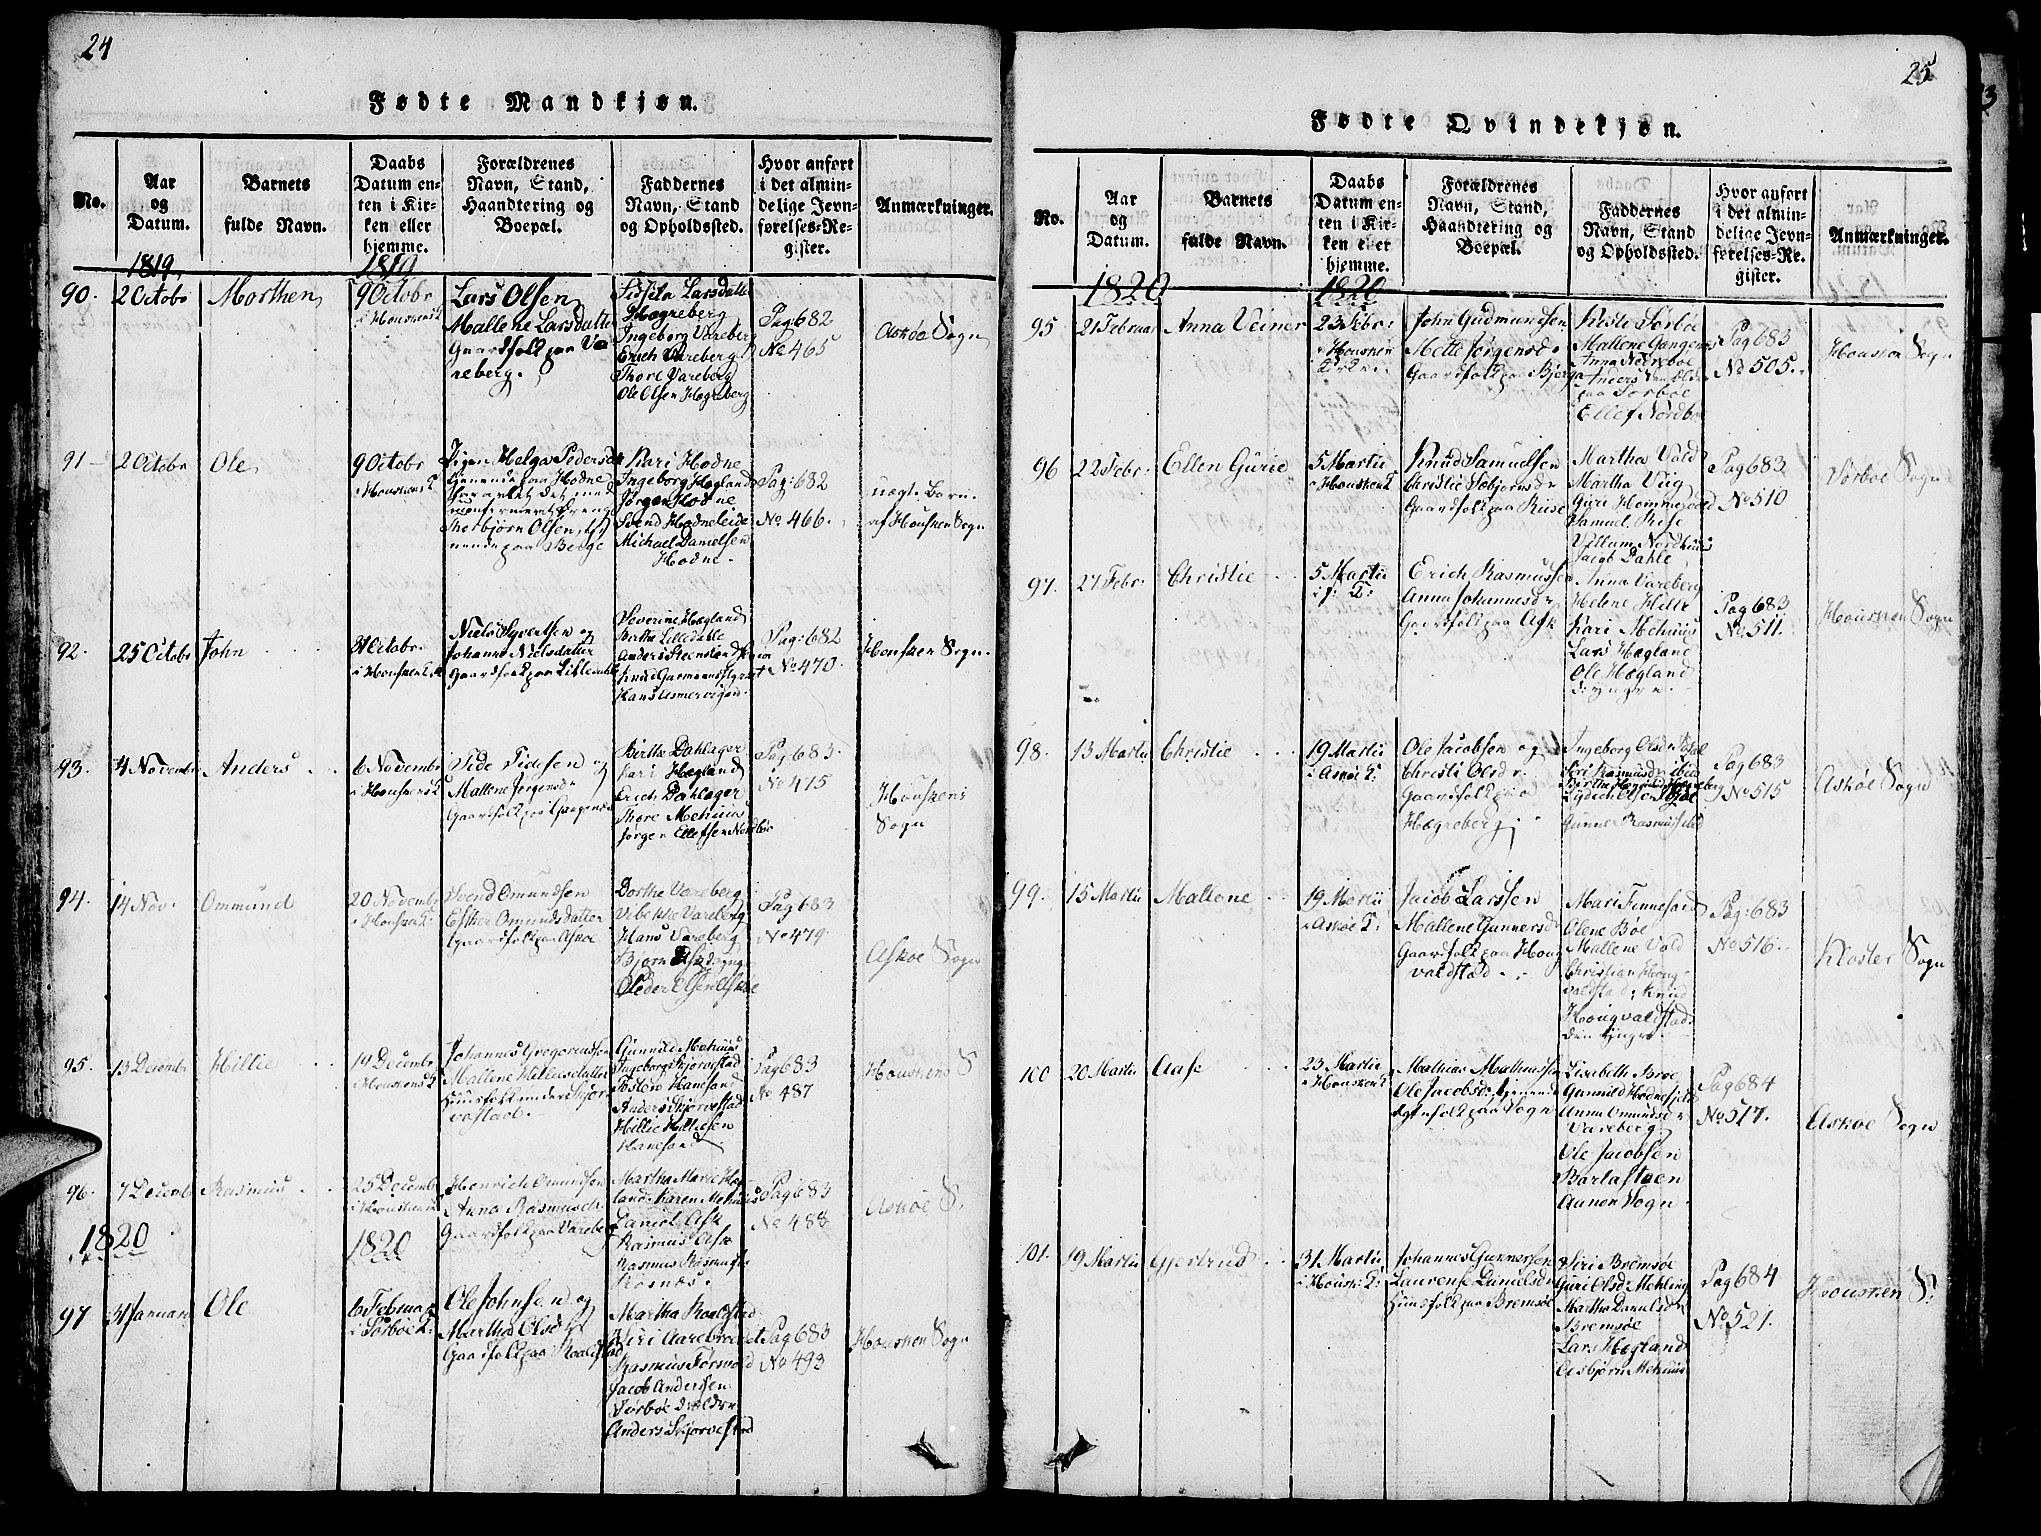 24
Fødte Mandkjøn.
No.
Aar
og
Datum.
Barnets
fulde Navn.
Daabs
Datum en-
ten i Kir-
ken eller
hjemme.
Forældrenes
Navn, Stand,
Haandtering og
Boepæl.
Faddernes
Navn, Stand
og Opholdssted.
Hvor anført
i det almin-
delige Jevn-
førelses-Re-
gister.
Anmærkninger.
1819
1819
90.
2 Octobr
Morthen
9 Octobr
i Houskens K
Lars Olsen
Mallene Larsdatter
Gaardfolk paa Va
reberg.
Larsdatter
Hægreberg
Ingeborg Vareberg
Erich Vareberg
Thore Vareberg
Ole Olsen Hægreberg
Pag: 682
No 465
Askøe Sogn
91
2 Octobr
Ole
9 Octobr
i Houskens K
Pigen Helga Peders
tjenende paa Hodne
Thorbjørn Olsen
paa Berge
Kari Hodne
Ingeborg Hægland
Jørgen Hodne
Svend Hodneleide
Michael Danielsen
Hodne.
Pag: 682
No 466.
uægte Barn
af Housken Sogn
92.
25 Octobr
John
31 Octobr.
i Housken K
Niels Syvertsen og
Johanna Nielsdatter
Gaardfolk paa Lilledahle
Severine Hægland
Bertha Lilledahle
Anders
Knud
Hans
Pag: 682
No 470.
Housken Sogn.
93.
4 Novembr
Anders
6 Novembr
i Housken K
Tide Tidesen og
Mallene Jørgensdr
Gaardfolk paa Gangenes
Birthe Dahlager
Kari Hægland
Erich Dahlager
Thore Mehuus
Jørgen Ellefsen Nordbøe
Pag 683.
No 475
Houskens
Sogn
94.
14 Nov.
Ommund
20 Novembr
i Housken K:
Svend Omundsen
Esther Omundsdatter
Gaardfolk paa Askøe
Dorthe Vareberg
Vibekke Vareberg
Hans Vareberg
Bjørn Ask d: yngre
Ole der Elsen Askøe
Pag 683
No 479
Askøe Sogn
95.
13 Decembr
Hillie
19 Decembr
i Houskens K
Johannes Gregoriussen
Mallene Hilliesdatter
Huusfolk under Skjør
vestad.
Gunnild Mehuus
Ingeborg Skjørvestad
Hanesand
Anders Skjørvestad
Hillie Hilliesen
Hanesand
Pag 683
No 487
Houskens S
96.
7 Decemb
Rasmus
25 Decembr
i Housken K
Henrich Omundsen
Anna Rasmusdr
Gaardfolk paa Vareberg
Martha Marie Hæg
land: Karen Mehuus
Daniel Ask
Rasmus Ask
Rasmus Rasmussen
Rosnæs.
Pag 683
No 488
Askøe S.
1820
1820
97
31 Januar
Ole
6 Februar
i Sørbøe K:
Ole Johnsen og
Martha Olsdr
Gaardfolk paa Roaldstad
Martha Roaldstad
Siri Aarebroeet
Rasmus Førsvold
Jacob Andersen
Sørbøe d: ældre
Anders Skjørvestad
Pag 683
No 493
Housken Sogn
25
Fødte Qvindekjøn.
No.
Aar
og
Datum.
Barnets
fulde Navn.
Daabs
Datum en-
ten i Kir-
ken eller
hjemme.
Forældrenes
Navn, Stand,
Haandtering og
Boepæl.
Faddernes
Navn, Stand
og Opholdssted.
Hvor anført
i det almin-
delige Jevn-
førelses-Re-
gister.
Anmærkninger.
1820
1820
95.
21 Februar
Anna Veiner
23 Febr:
i Housken
Kirke.
John Gudmundsen
Mette Jørgensdr
Gaardfolk paa Bjerga
Kisti Sørbøe
Mallene Gangenes
Anna Nedrebøe
Anders den ældre
paa Sørbøe
Ellef Nordbøe
Pag 683
No 505.
Housken Sogn
96
22 Febr:
Ellen Gurie
5 Martii
i Housken K
Knud Samuelsen
Christie Asbjørnsdr
Gaardfolk paa Riise
Martha Vold
Martha Viig
Guri Hommersand
Samuel Rise
Villum Nordhuus
Pag 683
No 510
Sørbøe Sogn
97.
27 Febr:
Christie
5 Martii
i H: K:
Erich Rasmussen
Anna Johannesdr
Gaardfolk paa Ask
Jacob Dahle
Anna Vareberg
Helene Hille
Kari Mehuus
Lars Hægland
Ole Hægland
d: yngre.
Pag 683
No 511.
Housken Sogn
98.
13 Martii
Christie
19 Martii
i Askøe K:
Ole Jacobsen og
Christi Olsdr.
Gaardfolk paa
Hægreberg
Ingeborg Olsdr
Siri Rasmusdr
Gunner Rasmussen
Pag 683
No 515
Askøe Sogn
99.
15 Martii
Mallene
19 Martii
i Askøe K:
Jacob Larssen
Mallene Gunnersdr
Gaardfolk paa Houg
valdstad.
Mari Finnesand
Olene Bøe
Mallene Vold
Christian Houg-
valdstad: Knud
Hougvaldstad
den yngre.
Pag: 683
No 516.
Kloster Sogn
100
20 Martii
Aase
23 Martii
i Housken K
Mathias Mathiassen
Ole Jacobsdr: tjenende
Sogn
Lisabeth Brøe
Gunnild Hodnefjeld
Anna Omundsdr
Vareberg
Ole Jacobsen
Bartastøen
Aanen Vogn.
Pag 684
No 517.
Askøe Sogn
101.
19 Martii
Gjertrud
31 Martii
i Housk: K:
Johannes Gunnersen
Laurense Danielsdr
Huusfolk paa Bremsøe
Siri Bremsøe
Guri Olsdr Mehling
Martha Danielsdr
Bremsøe
Lars Hægland
Asbjørn Mehuus
Pag 684
No 521.
Housken S: